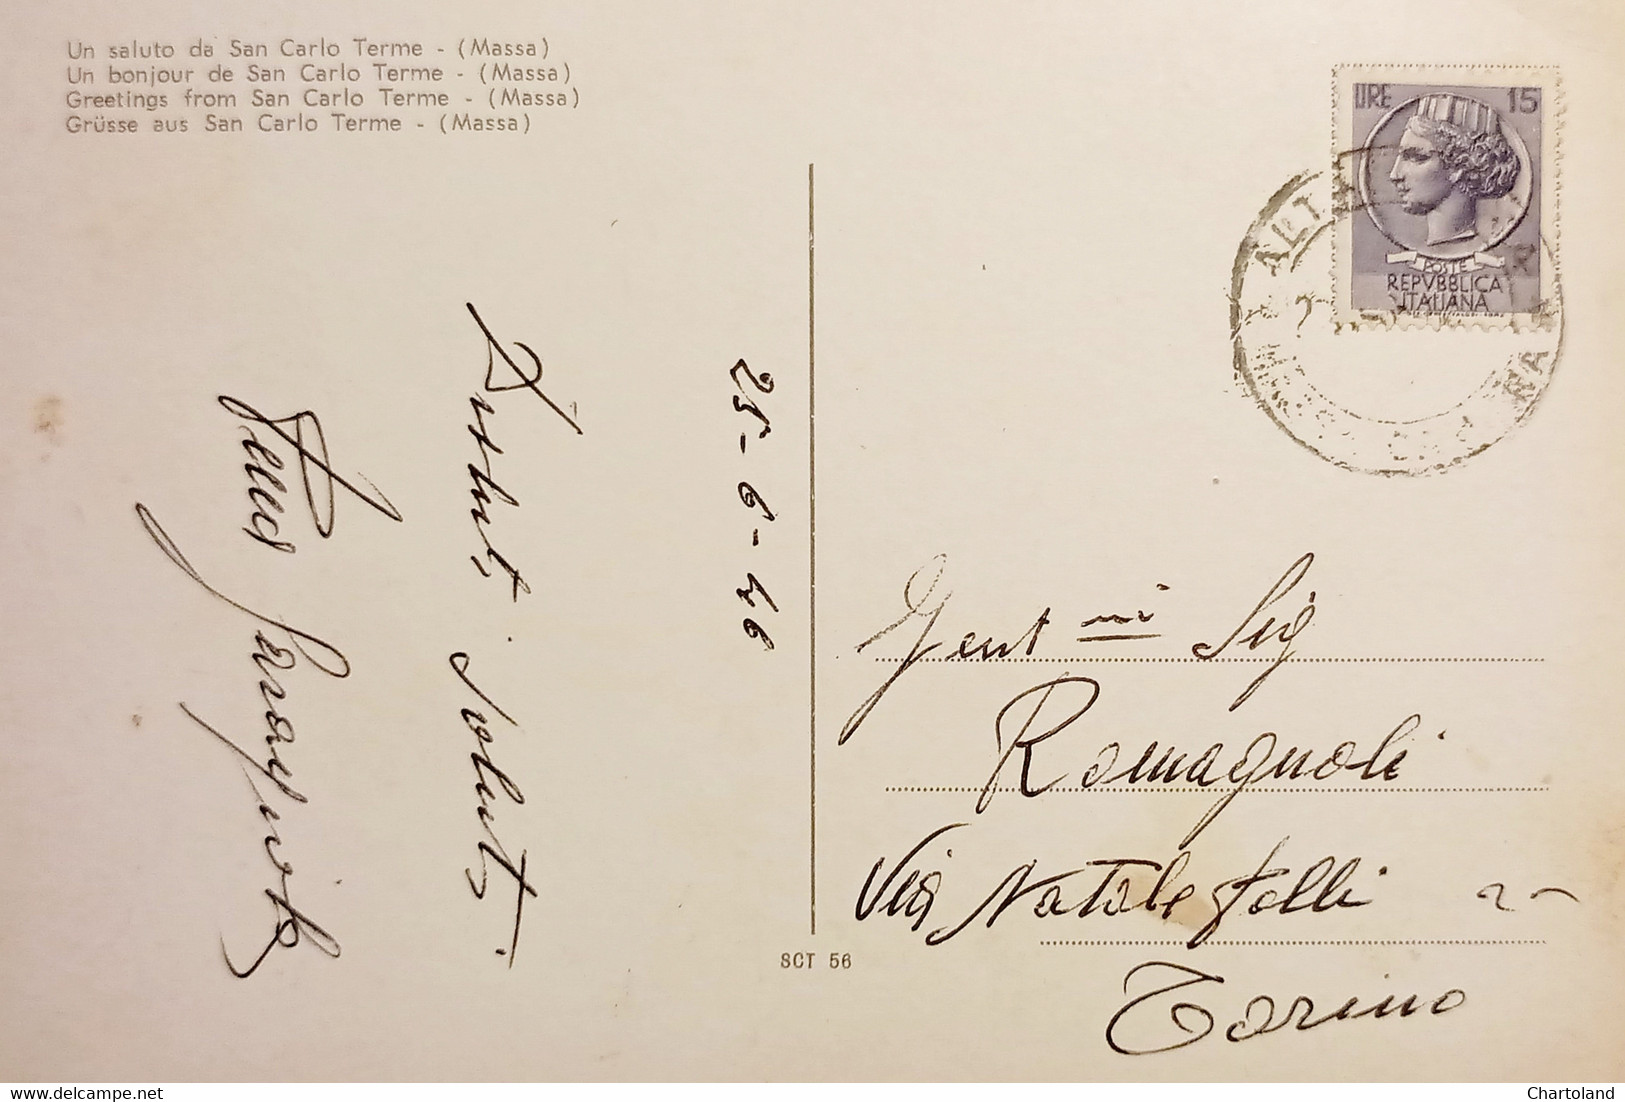 Un saluto da San Carlo Terme - (Massa)
Un bonjour de San Carlo Terme - (Massa)
Greetings from San Carlo Terme - (Massa)
Grüsse aus San Carlo Terme - (Massa)
LIRE 15
POSTE
REPVBBLICA
ITALIANA
25-6-
Distinti saluti
Gent mi Sig
Romagnoli
Via Natale
Torino
SCT 56
www.delcampe.net
Chartoland